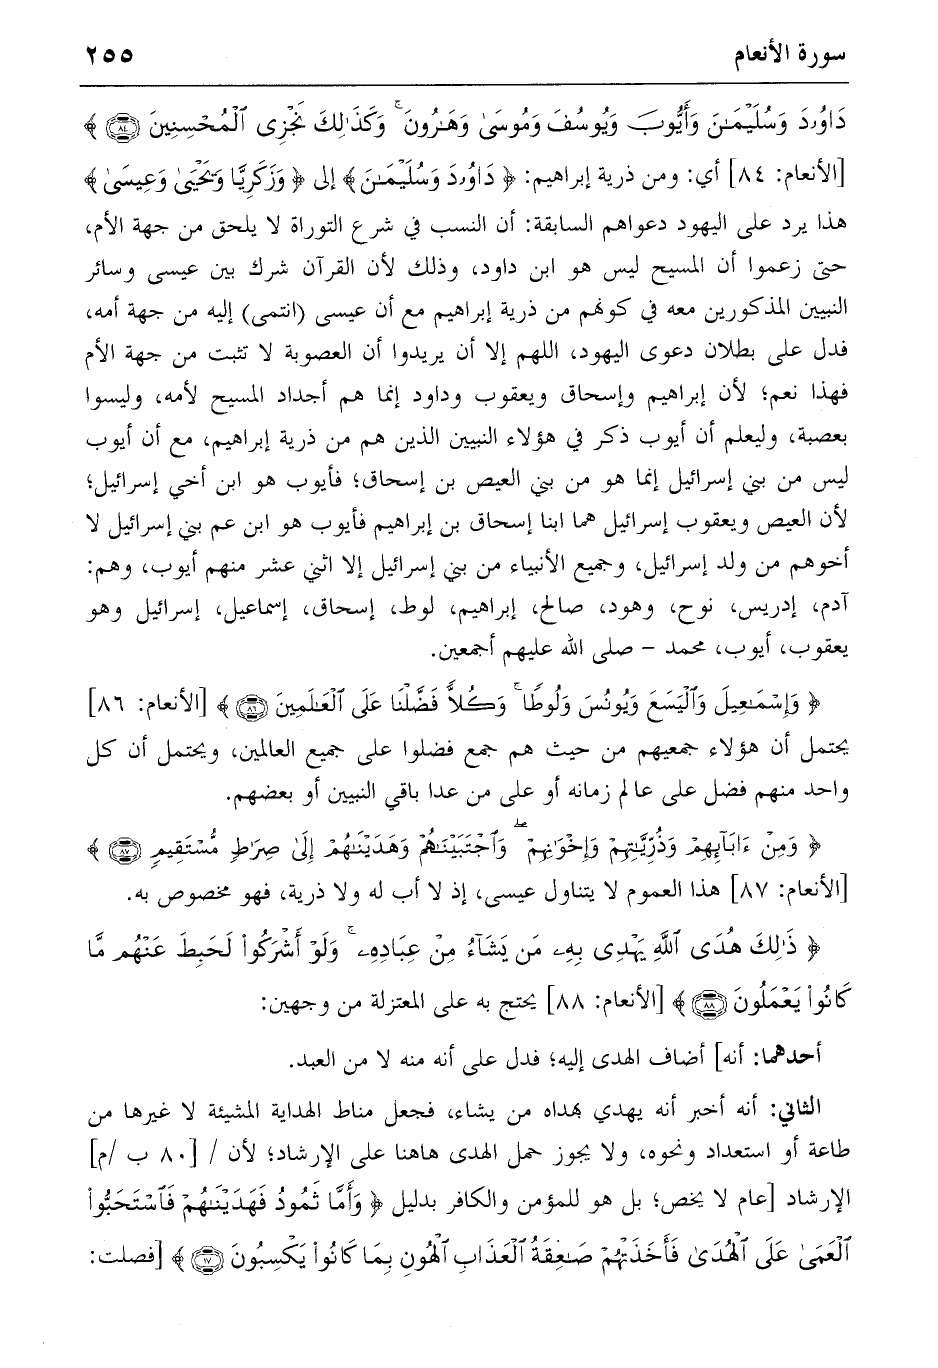 سورة الأنعام ٢٥٥
دَاوُۥدَ وَسُلَيْمَـٰنَ وَأَيُّوبَ وَيُوسُفَ وَمُوسَىٰ وَهَـٰرُونَ ۚ وَكَذَٰلِكَ نَجْزِى ٱلْمُحْسِنِينَ ﴿٨٤﴾ ﴾
[الأنعام: ٨٤] أي: ومن ذرية إبراهيم: ﴿ دَاوُۥدَ وَسُلَيْمَـٰنَ﴾ إلى ﴿ وَزَكَرِيَّا وَيَحْيَىٰ وَعِيسَىٰ﴾
هذا يرد على اليهود دعواهم السابقة: أن النسب في شرع التوراة لا يلحق من جهة الأم،
حتى زعموا أن المسيح ليس هو ابن داود، وذلك لأن القرآن شرك بين عيسى وسائر
النبيين المذكورين معه في كونهم من ذرية إبراهيم مع أن عيسى (انتمى) إليه من جهة أمه،
فدل على بطلان دعوى اليهود، اللهم إلا أن يريدوا أن العصوبة لا تثبت من جهة الأم
فهذا نعم؛ لأن إبراهيم وإسحاق ويعقوب وداود إنما هم أجداد المسيح لأمه، وليسوا
بعصبة، وليعلم أن أيوب ذكر في هؤلاء النبيين الذين هم من ذرية إبراهيم، مع أن أيوب
ليس من بني إسرائيل إنما هو من بني العيص بن إسحاق؛ فأيوب هو ابن أخي إسرائيل؛
لأن العيص ويعقوب إسرائيل هما ابنا إسحاق بن إبراهيم فأيوب هو ابن عم بني إسرائيل لا
أخوهم من ولد إسرائيل، وجميع الأنبياء من بني إسرائيل إلا اثني عشر منهم أيوب، وهم:
آدم، إدريس، نوح، وهود، صالح، إبراهيم، لوط، إسحاق، إسماعيل، إسرائيل وهو
يعقوب، أيوب، محمد - صلى الله عليهم أجمعين.
﴿ وَإِسْمَـٰعِيلَ وَٱلْيَسَعَ وَيُونُسَ وَلُوطًا ۚ وَكُلًّا فَضَّلْنَا عَلَى ٱلْعَـٰلَمِينَ ﴿٨٦﴾ ﴾ [الأنعام: ٨٦]
يحتمل أن هؤلاء جميعهم من حيث هم جمع فضلوا على جميع العالمين، ويحتمل أن كل
واحد منهم فضل على عالم زمانه أو على من عدا باقي النبيين أو بعضهم.
﴿ وَمِنْ ءَابَآئِهِمْ وَذُرِّيَّـٰتِهِمْ وَإِخْوَٰنِهِمْ ۖ وَٱجْتَبَيْنَـٰهُمْ وَهَدَيْنَـٰهُمْ إِلَىٰ صِرَٰطٍ مُّسْتَقِيمٍ ﴿٨٧﴾ ﴾
[الأنعام: ٨٧] هذا العموم لا يتناول عيسى، إذ لا أب له ولا ذرية، فهو مخصوص به.
﴿ ذَٰلِكَ هُدَى ٱللَّهِ يَهْدِى بِهِۦ مَن يَشَآءُ مِنْ عِبَادِهِۦ ۚ وَلَوْ أَشْرَكُوا۟ لَحَبِطَ عَنْهُم مَّا
كَانُوا۟ يَعْمَلُونَ ﴿٨٨﴾ ﴾ [الأنعام: ٨٨] يحتج به على المعتزلة من وجهين:
أحدهما: أنه] أضاف الهدى إليه؛ فدل على أنه منه لا من العبد.
الثاني: أنه أخبر أنه يهدي بهداه من يشاء، فجعل مناط الهداية المشيئة لا غيرها من
طاعة أو استعداد ونحوه، ولا يجوز حمل الهدى هاهنا على الإرشاد؛ لأن / [٨٠ ب /م]
الإرشاد [عام لا يخص؛ بل هو للمؤمن والكافر بدليل ﴿ وَأَمَّا ثَمُودُ فَهَدَيْنَـٰهُمْ فَٱسْتَحَبُّوا۟
ٱلْعَمَىٰ عَلَى ٱلْهُدَىٰ فَأَخَذَتْهُمْ صَـٰعِقَةُ ٱلْعَذَابِ ٱلْهُونِ بِمَا كَانُوا۟ يَكْسِبُونَ ﴿١٧﴾ ﴾ [فصلت: